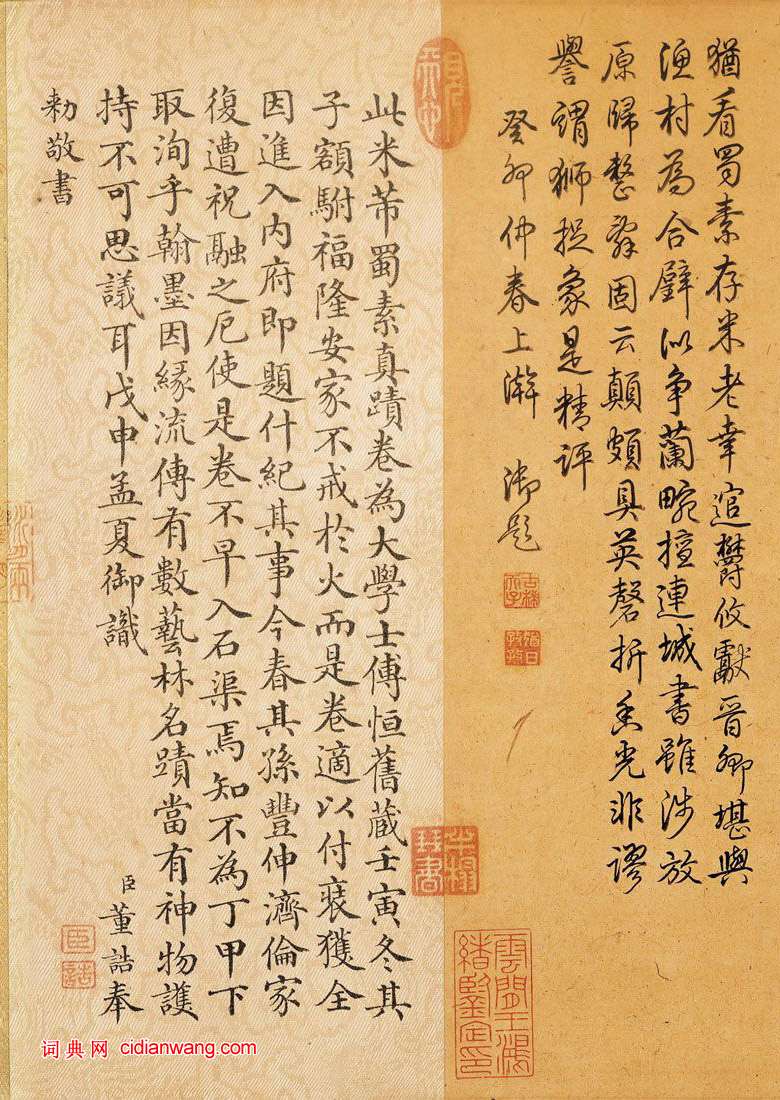 猶看蜀素存米老幸逭鬱攸獻晉卿堪與
漁村為合璧似爭蘭畹擅連城書雖涉放
原歸整辭固云顛頗具英磬折香光非謬
譽謂獅捉象是精評
癸卯仲春上澣 御題
古稀天子
猶日孜孜
雲間王鴻緒鑒定印
此米芾蜀素真蹟卷為大學士傅恒舊藏壬寅冬其
子額駙福隆安家不戒於火而是卷適以付裝獲全
因進入內府即題什紀其事今春其孫豐伸濟倫家
復遭祝融之厄使是卷不早入石渠焉知不為丁甲下
取洵乎翰墨因緣流傳有數藝林名蹟當有神物護
持不可思議耳戊申孟夏御識
臣董誥奉
勅敬書
臣誥
词典网 cidianwang.com